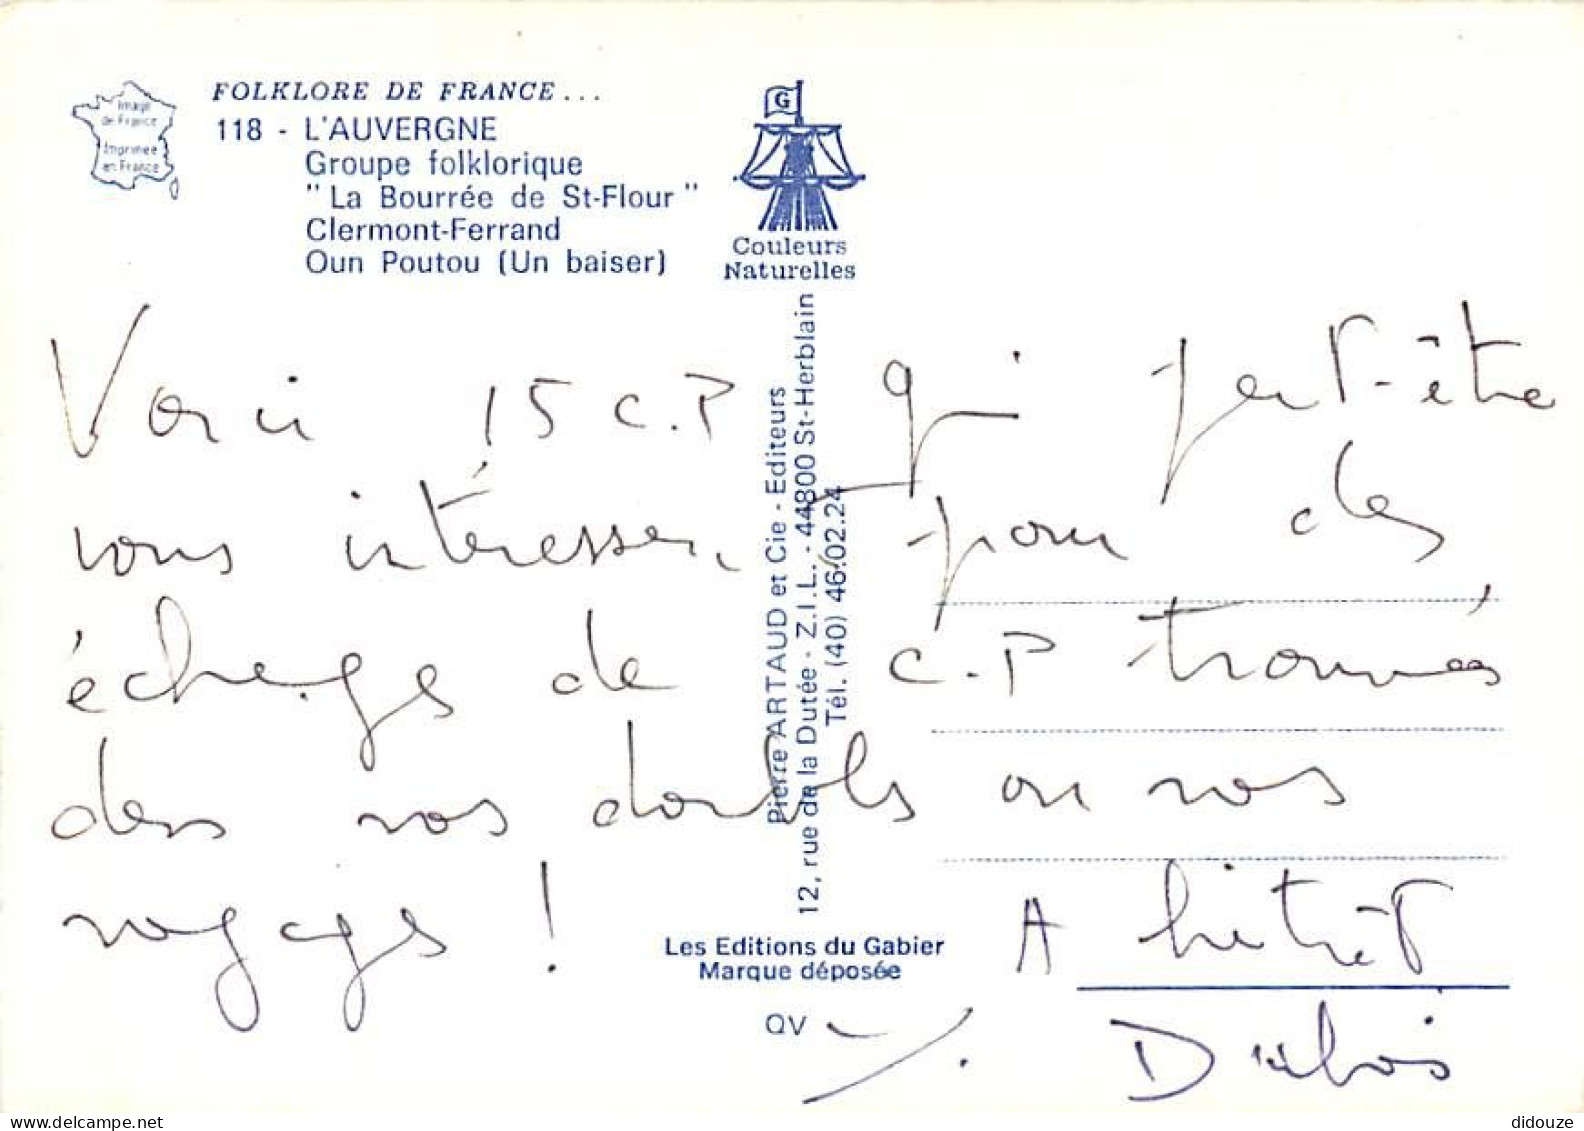 Image
de France
Imprimée
en France
FOLKLORE DE FRANCE...
118 - L'AUVERGNE
Groupe folklorique
"La Bourrée de St-Flour"
Clermont-Ferrand
Oun Poutou (Un baiser)
G
Couleurs
Naturelles
Pierre ARTAUD et Cie - Editeurs
12, rue de la Dutée - Z.I.L. - 44800 St-Herblain
Tél. (40) 46.02.24
Voici 15 C.P qui peut-être
vous intéresser, pour des
échanges de C.P trouvés
dans nos doubles ou nos
voyages !
A bientôt
Y. Dubois
Les Editions du Gabier
Marque déposée
QV
didouze